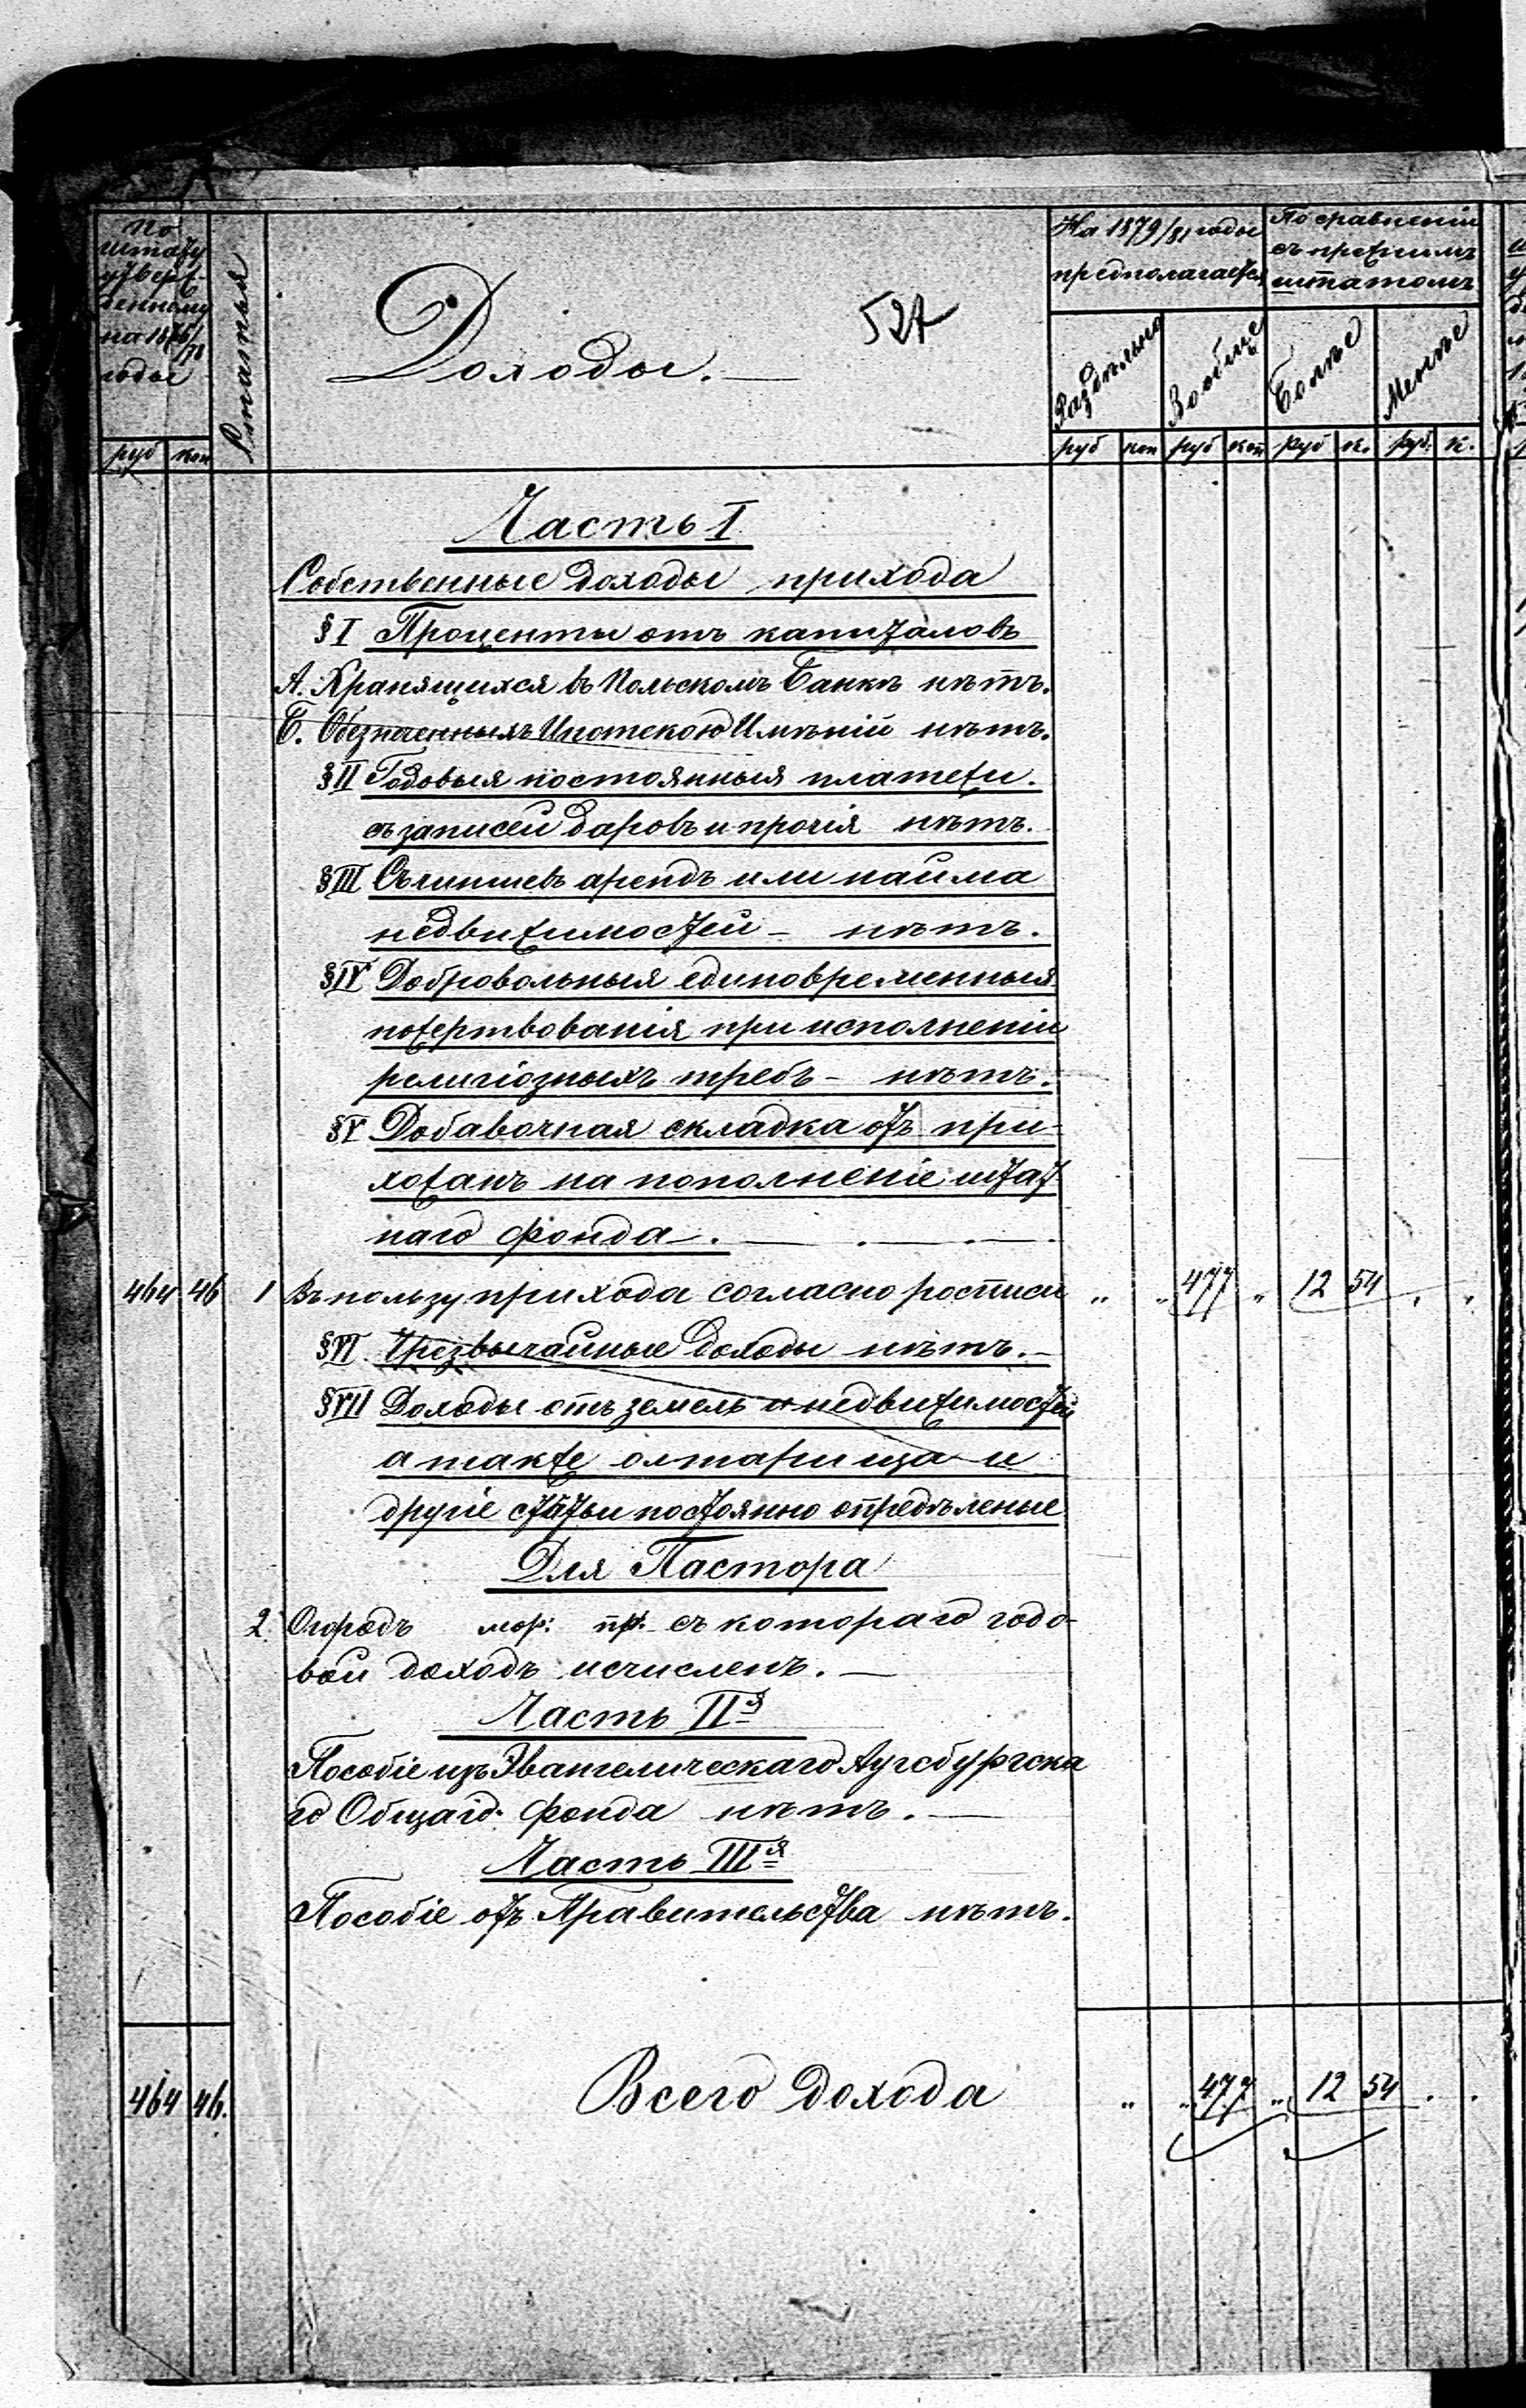 По
штату
утверж-
денному
на 1876/78
годы
руб коп
Статья
Доходы.
527
На 1879/81 годы
предполагается
Раздѣльно
Вообще
По сравненію
съ прежнимъ
штатомъ
Болѣе
Менѣе
руб коп руб коп руб к. руб. к.
Часть I
Собственные доходы прихода
§ I Проценты отъ капиталовъ
А. Хранящихся въ Польскомъ Банкѣ нѣтъ.
Б. Обезпеченныхъ Ипотекою Имѣній нѣтъ.
§ II Годовыя постоянныя платежи.
съ записей даровъ и прочія нѣтъ.
§ III Съ чиншевъ арендъ или найма
недвижимостей – нѣтъ.
§ IV Добровольныя единовременныя
пожертвованія при исполненіи
религіозныхъ требъ – нѣтъ.
§ V Добавочная складка отъ при-
хожанъ на пополненіе штат
наго фонда.
464 46 1 Въ пользу прихода согласно росписи „ „ 477 „ 12 54 . .
§ VI Чрезвычайные доходы нѣтъ.
§ VII Доходы отъ земель и недвижимостей
а также олтарища и
другіе статьи постоянно опредѣленые
Для Пастора
2. Огородъ мор: пр. съ котораго годо-
вой доходъ исчисленъ.
Часть IIя
Пособіе изъ Эвангелическаго Аугсбургска
го Общаго фонда нѣтъ.
Часть IIIя
Пособіе отъ Правительства нѣтъ.
464 46. Всего дохода „ „ 477 „ 12 54 . .